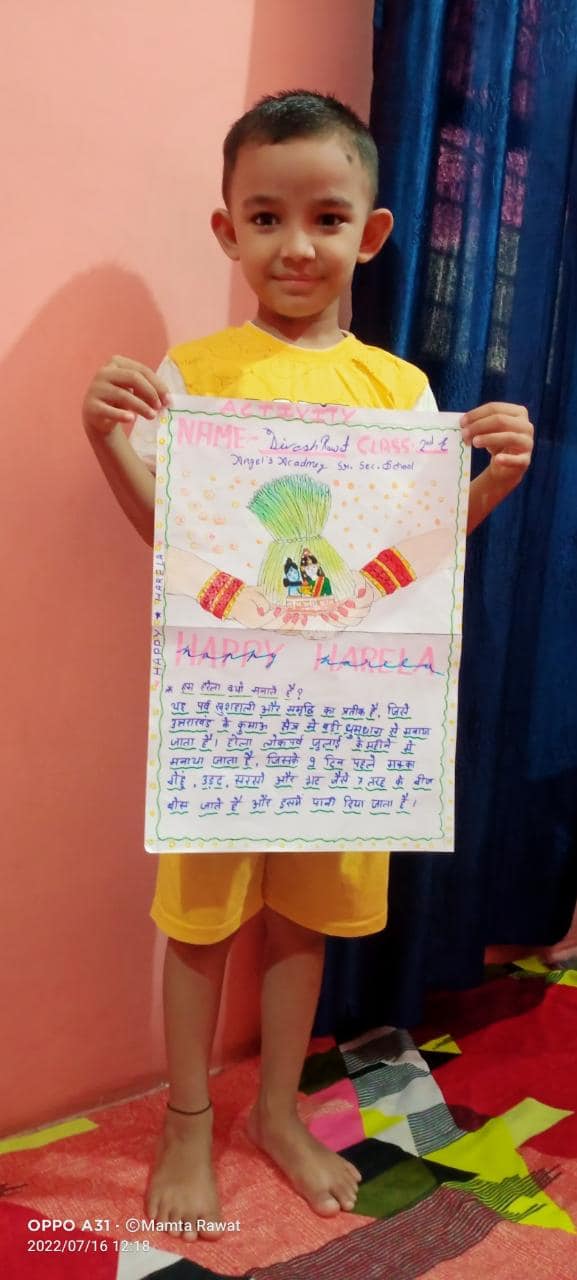 ACTIVITY
NAME- Divesh Rawat CLASS- 2nd E
Angel's Acadmey Sr. Sec. School
HAPPY ★ HARELA
HAPPY HARELA
happy harela
* हम हरेला क्यों मनाते हैं?
यह पर्व खुशहाली और समृद्धि का प्रतीक है, जिसे
उत्तराखंड के कुमाऊं क्षेत्र में बड़ी धूमधाम से मनाया
जाता है। हरेला लोकपर्व जुलाई के महीने में
मनाया जाता है, जिसके 9 दिन पहले मक्का
गेहूं, उड़द, सरसों और भट जैसे 7 तरह के बीज
बोए जाते हैं और इसमें पानी दिया जाता है।
OPPO A31 · ©Mamta Rawat
2022/07/16 12:18